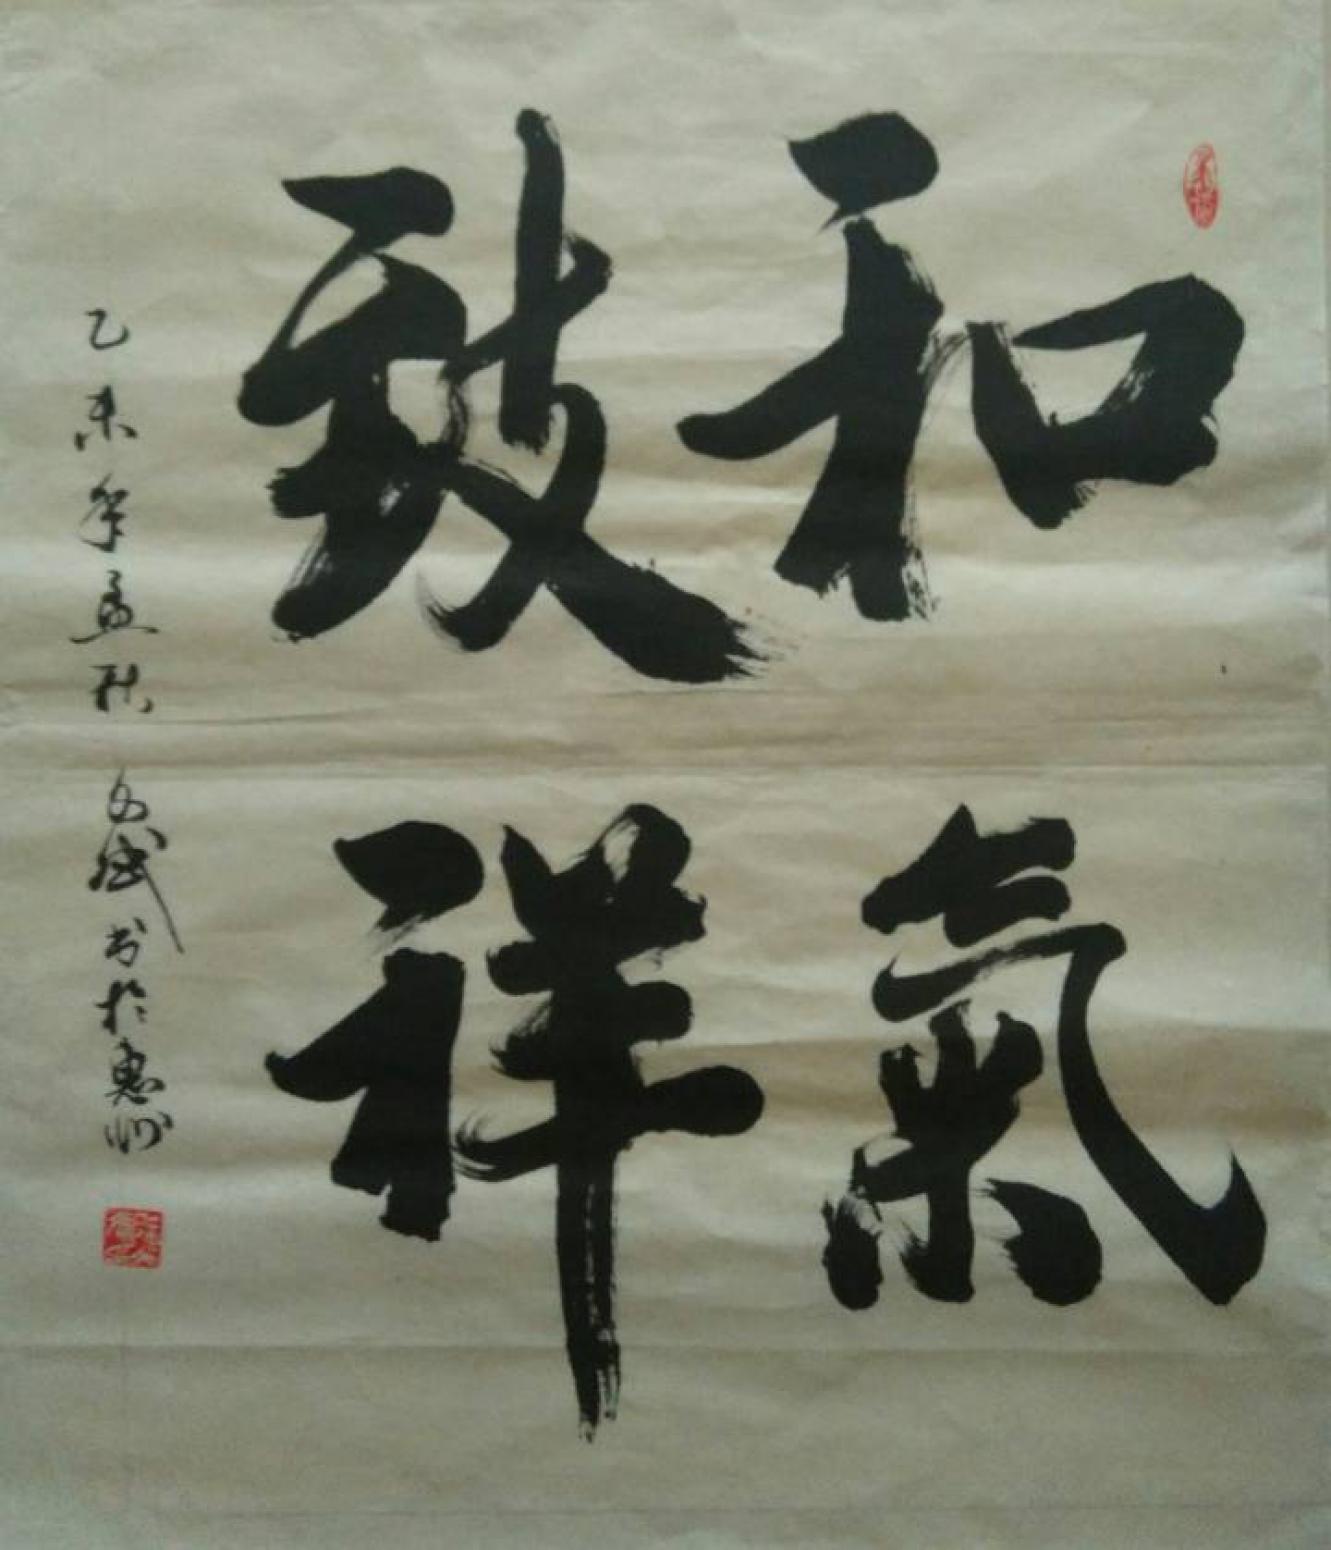 和氣
致祥
乙未年孟秋 文斌书於惠州